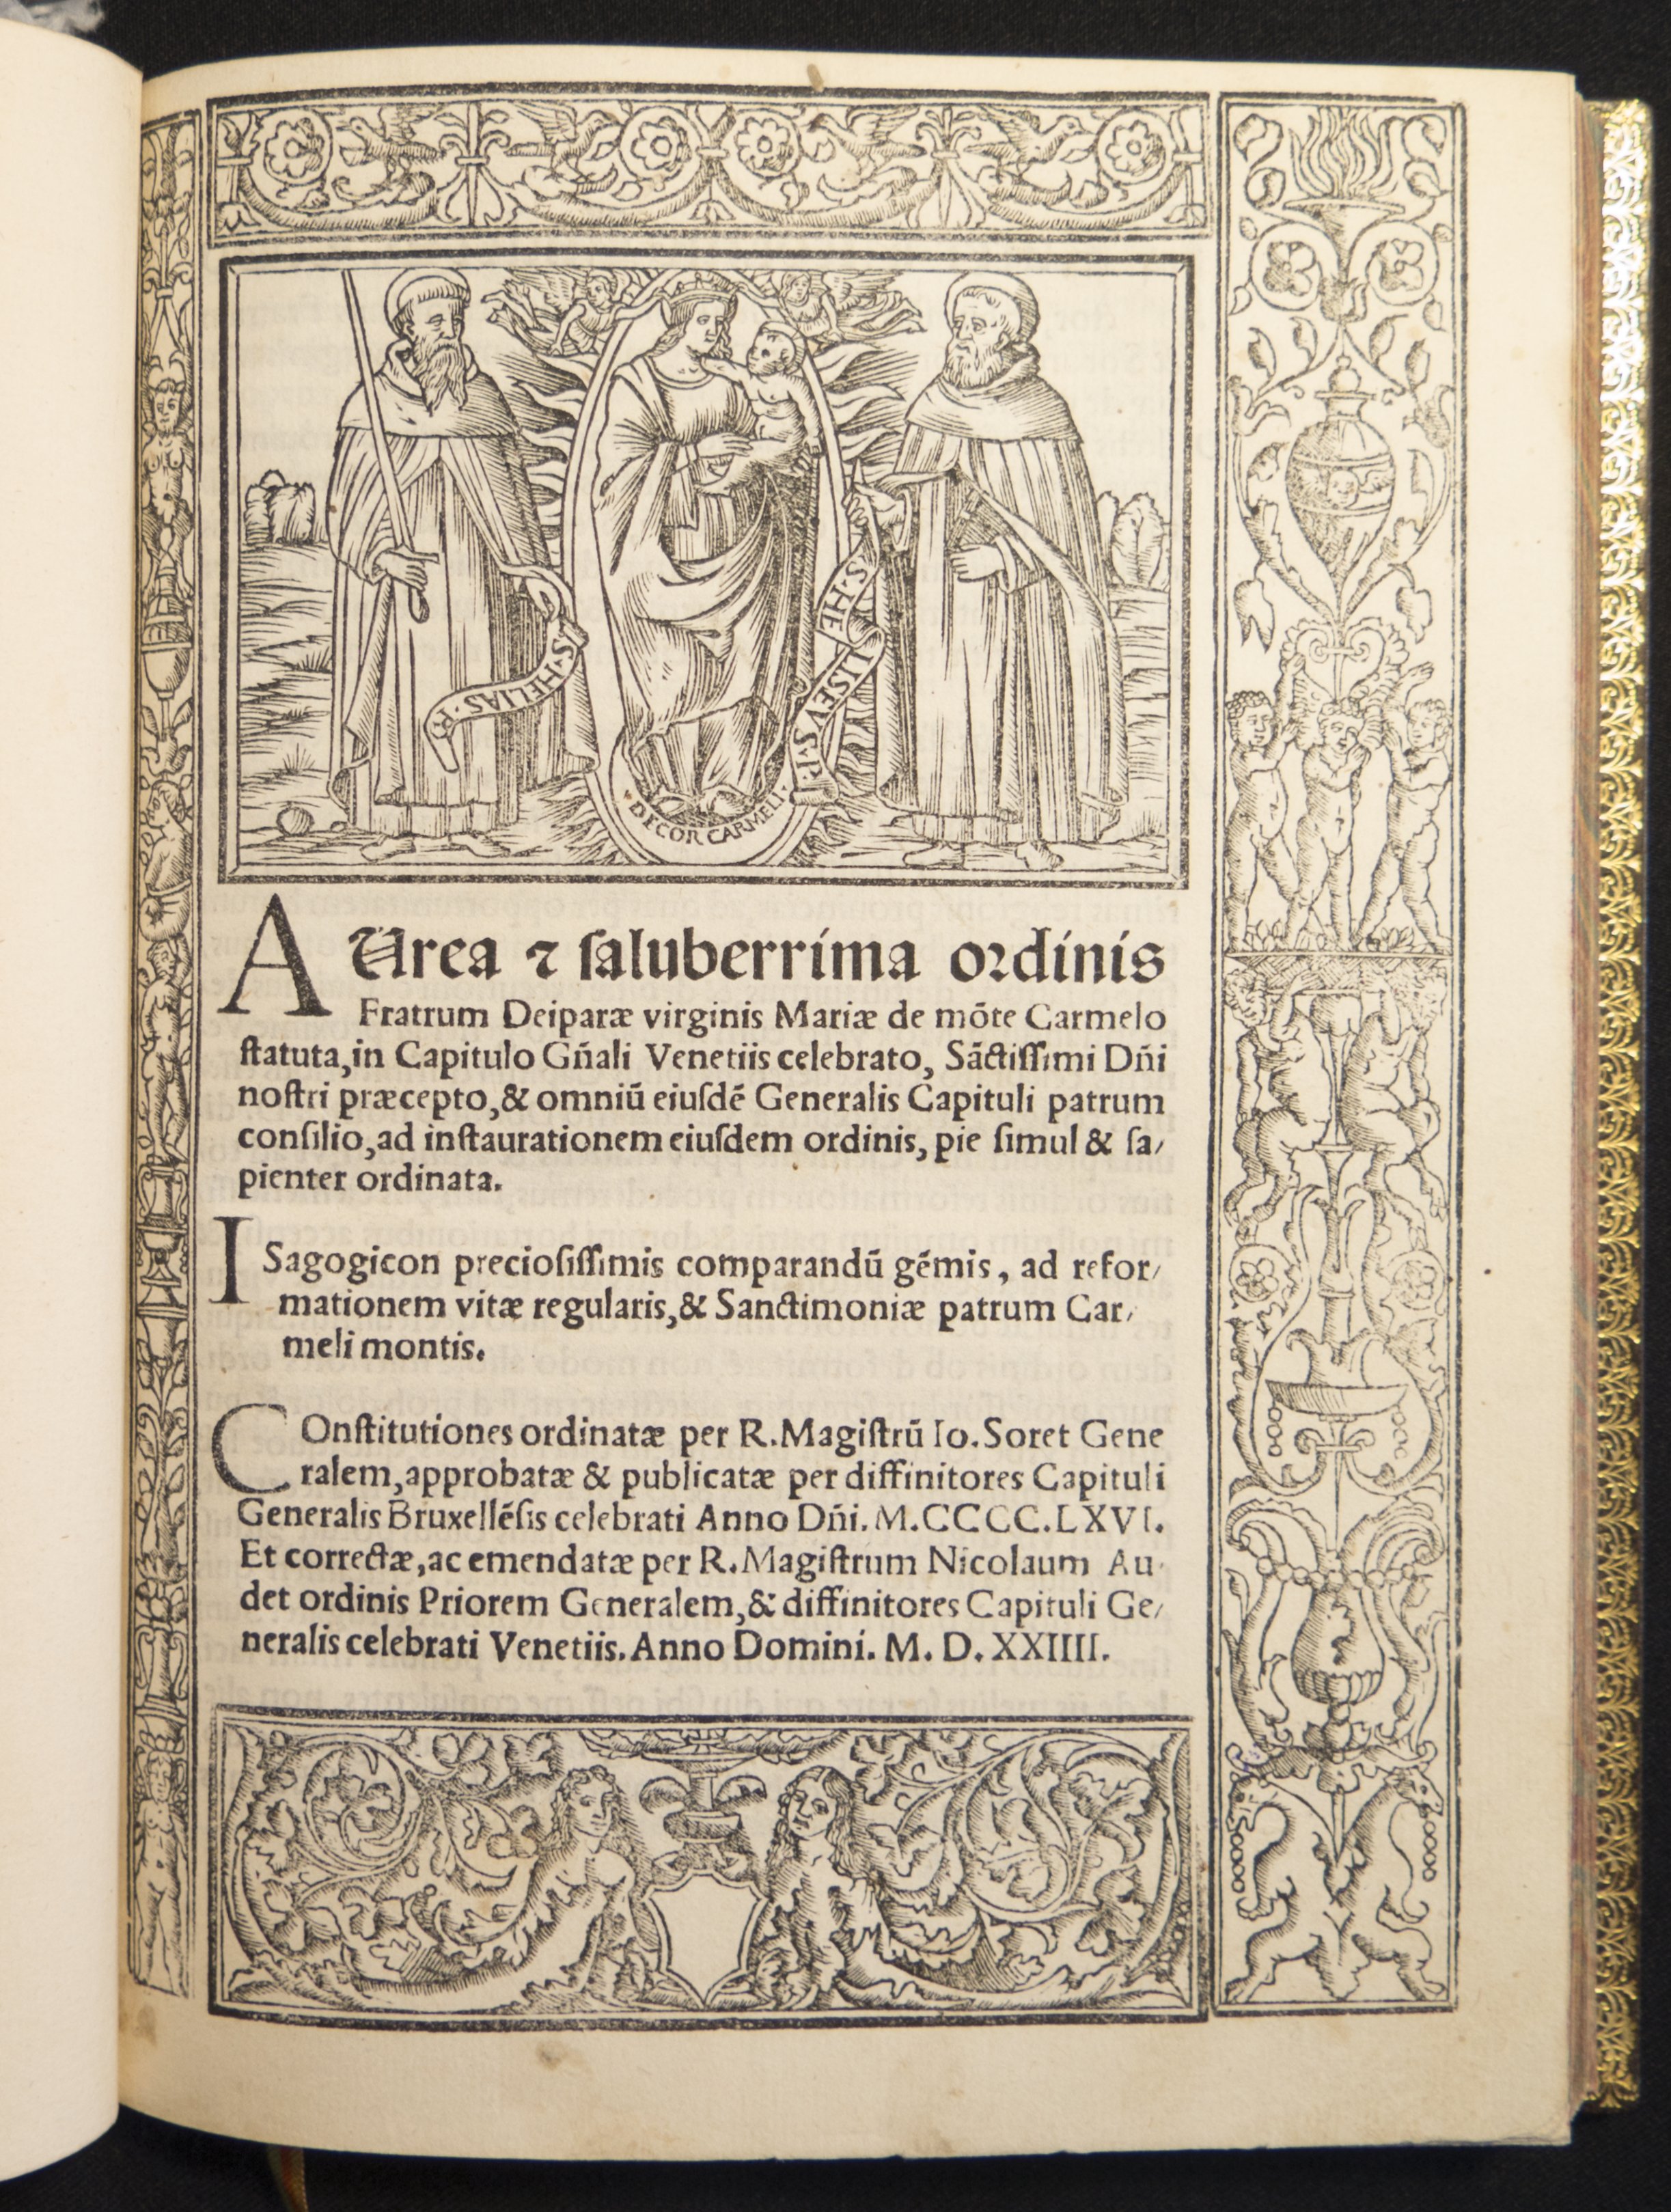 S·HELIAS·P.
S·HELISEVS·P.
·DECOR CARMELI·
AUrea ⁊ ſaluberrima ordinis
Fratrum Deiparæ virginis Mariæ de mõte Carmelo
ſtatuta,in Capitulo Gñali Venetiis celebrato, Sãctiſſimi Dñi
noſtri præcepto,& omniũ eiuſdẽ Generalis Capituli patrum
conſilio,ad inſtaurationem eiuſdem ordinis, pie ſimul & ſa/
pienter ordinata.
ISagogicon precioſiſſimis comparandũ gẽmis, ad refor/
mationem vitæ regularis,& Sanctimoniæ patrum Car/
meli montis.
COnſtitutiones ordinatæ per R.Magiſtrũ Io.Soret Gene
ralem,approbatæ & publicatæ per diffinitores Capituli
Generalis Bruxellẽſis celebrati Anno Dñi. M.CCCC.LXVI.
Et correctæ,ac emendatæ per R.Magiſtrum Nicolaum Au/
det ordinis Priorem Generalem,& diffinitores Capituli Ge/
neralis celebrati Venetiis.Anno Domini. M. D. XXIIII.